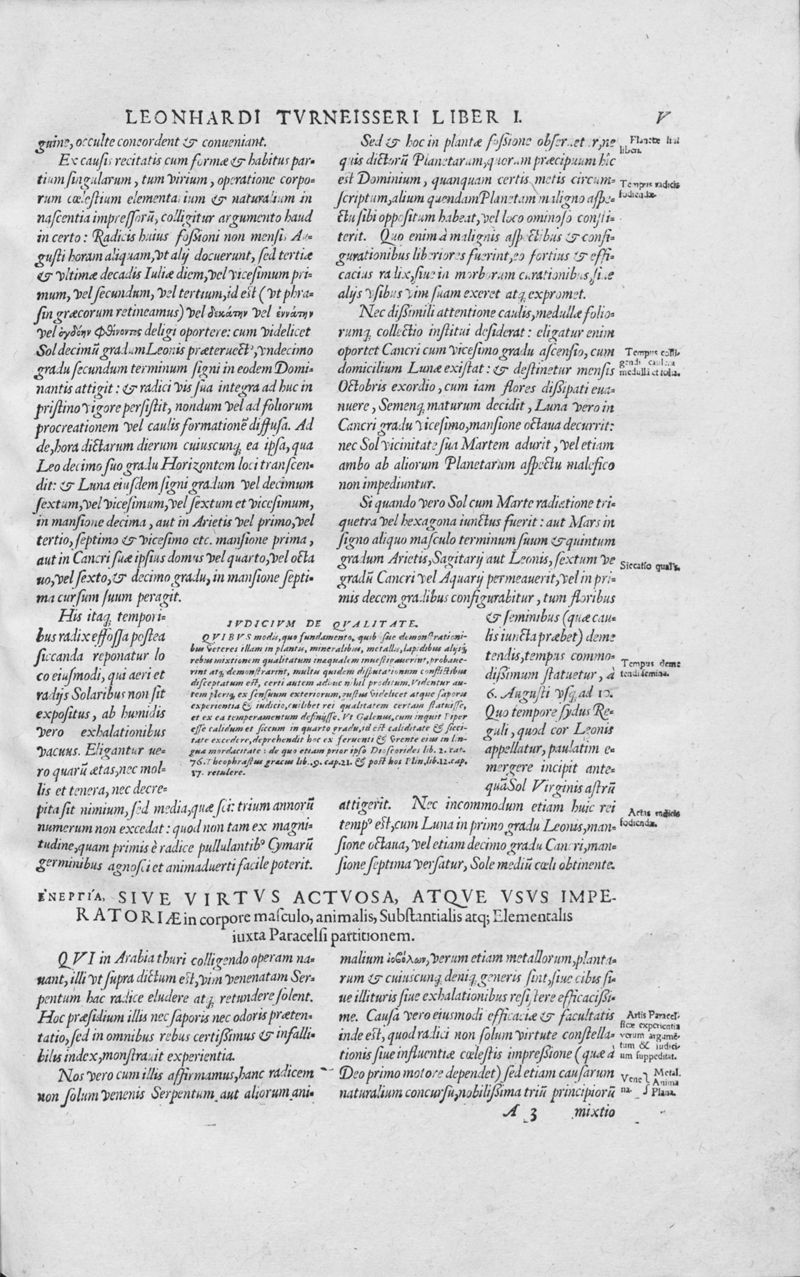 LEONHARDI TVRNEISSERI LIBER I.
V
guine, occulte concordent & conueniant.
Ex causis recitatis cum formæ & habitus par-
tium singularum, tum virium, operatione corpo-
rum cœlestium elementarium & naturalium in
nascentia impressorũ, colligitur argumento haud
incerto: Radicis huius fossioni non mensis Au-
gusti horam aliquam, vt alij docuerunt, sed tertiæ
& vltimæ decadis Iuliæ diem, vel vicesimum pri-
mum, vel secundum, vel tertium, id est (vt phra-
sin græcorum retineamus) vel δεκάτην vel ἐννάτην
vel ὀγδόην φθίνοντος deligi oportere: cum videlicet
Sol decimũ gradum Leonis præteruect⁹, vndecimo
gradu secundum terminum signi in eodem Domi-
nantis attigit: & radici vis sua integra adhuc in
pristino vigore persistit, nondum vel ad foliorum
procreationem vel caulis formationẽ diffusa. Ad
de, hora dictarum dierum cuiuscunq; ea ipsa, qua
Leo decimo suo gradu Horizontem loci transcen-
dit: & Luna eiusdem signi gradum vel decimum
sextum, vel vicesimum, vel sextum et vicesimum,
in mansione decima, aut in Arietis vel primo, vel
tertio, septimo & vicesimo etc. mansione prima,
aut in Cancri suæ ipsius domus vel quarto, vel octa
uo, vel sexto, & decimo gradu, in mansione septi-
ma cursum suum peragit.
His itaq; tempori-
bus radix effossa postea
siccanda reponatur lo
co eiusmodi, qui aeri et
radijs Solaribus non sit
expositus, ab humidis
vero exhalationibus
vacuus. Eligantur ue-
ro quarũ ætas, nec mol-
lis et tenera, nec decre-
pita sit nimium, sed media, quæ scit trium annorũ
numerum non excedat: quod non tam ex magni-
tudine, quam primis è radice pullulantib⁹ Cymarũ
germinibus agnosci et animaduerti facile poterit.
IVDICIVM DE QVALITATE.
QVIBVS modis, quo fundamento, quib⁹ siue demonstrationi-
bus veteres illam in plantis, mineralibus, metallis, lapidibus alijsq;
rebus mixtionem qualitatum inæqualem inuestigauerint, probaue-
rint atq; demonstrarint, multis quidem disputationum conflictibus
disceptatum est, certi autem adhuc nihil proditum. Videntur au-
tem pleriq; ex sensuum exteriorum, gustus videlicet atque saporis
experientia & iudicio, cuilibet rei qualitatem certam statuisse,
et ex ea temperamentum definijsse. Vt Galenus, cum inquit Piper
esse calidum et siccum in quarto gradu, id est caliditate & sicci-
tate excedere, deprehendit hoc ex feruenti & vrente eius in lin-
gua mordacitate: de quo etiam prior ipso Dioscorides lib. 2. cap.
76. Theophrastus græcus lib. 9. cap. 21. & post hos Plin. lib. 12. cap.
17. retulere.
Sed & hoc in plantæ fossione obseruetur, ne
quis dictorũ Planetarum, quorum præcipuum hic
est Dominium, quanquam certis metis circum-
scriptum, alium quendam Planetam maligno aspe-
ctu sibi oppositum habeat, vel loco ominoso consti-
terit. Quo enim à malignis aspectibus & confi-
gurationibus liberiores fuerint, eo fortius & effi-
cacius radix, siue in morborum curationibus, siue
alijs vsibus vim suam exeret atq; expromet.
Nec dissimili attentione caulis, medullæ folio-
rumq; collectio institui desiderat: eligatur enim
oportet Cancri cum vicesimo gradu ascensio, cum
domicilium Lunæ existat: & destinetur mensis
Octobris exordio, cum iam flores dissipati eua-
nuere, Semenq; maturum decidit, Luna vero in
Cancri gradu vicesimo, mansione octaua decurrit:
nec Sol vicinitate sua Martem adurit, vel etiam
ambo ab aliorum Planetarum aspectu malefico
non impediuntur.
Si quando vero Sol cum Marte radiatione tri-
quetra vel hexagona iunctus fuerit: aut Mars in
signo aliquo masculo terminum suum & quintum
gradum Arietis, Sagitarij aut Leonis, sextum ve
gradũ Cancri vel Aquarij permeauerit, vel in pri-
mis decem gradibus configurabitur, tum floribus
& seminibus (quæ cau-
lis iuncta præbet) deme
tendis, tempus commo-
dissimum statuetur, à
6. Augusti vsq; ad 10.
Quo tempore sydus Re-
guli, quod cor Leonis
appellatur, paulatim e-
mergere incipit ante-
quã Sol Virginis astrũ
attigerit. Nec incommodum etiam huic rei
temp⁹ est, cum Luna in primo gradu Leonis, man-
sione octaua, vel etiam decimo gradu Cancri, man-
sione septima versatur, Sole mediũ cœli obtinente.
Planetæ sint
liberi.
Tempus radicis
fodiendæ.
Tempus colli-
gendi caulem
medulli et folia.
Siccatio qualis.
Tempus deme
tendi semina.
Artis radicis
fodiendæ.
ἘΝΕΡΓΊΑ, SIVE VIRTVS ACTVOSA, ATQVE VSVS IMPE-
RATORIÆ in corpore masculo, animalis, Substantialis atq; Elementalis
iuxta Paracelsi partitionem.
QVI in Arabia thuri colligendo operam na-
uant, illi vt supra dictum est, vim venenatam Ser-
pentum hac radice eludere atq; retundere solent.
Hoc præsidium illis nec saporis nec odoris præten-
tatio, sed in omnibus rebus certissimus & infalli-
bilis index, monstrauit experientia.
Nos vero cum illis affirmamus, hanc radicem
non solum venenis Serpentum aut aliorum ani-
malium ἰοβόλων, verum etiam metallorum, planta-
rum & cuiuscunq; deniq; generis sint, siue cibis si-
ue illituris siue exhalationibus resistere efficacissi-
me. Causa vero eiusmodi efficaciæ & facultatis
inde est, quod radici non solum virtute constella-
tionis siue influentiæ cœlestis impressione (quæ à
Deo primo motore dependet) sed etiam causarum
naturalium concursu, nobilissima triũ principiorũ
Artis Paracel-
sicæ experientia
verum argumẽ-
tum & iudici-
um suppeditat.
Vene-
na.
Metal.
Anima
Plana.
A 3
mixtio